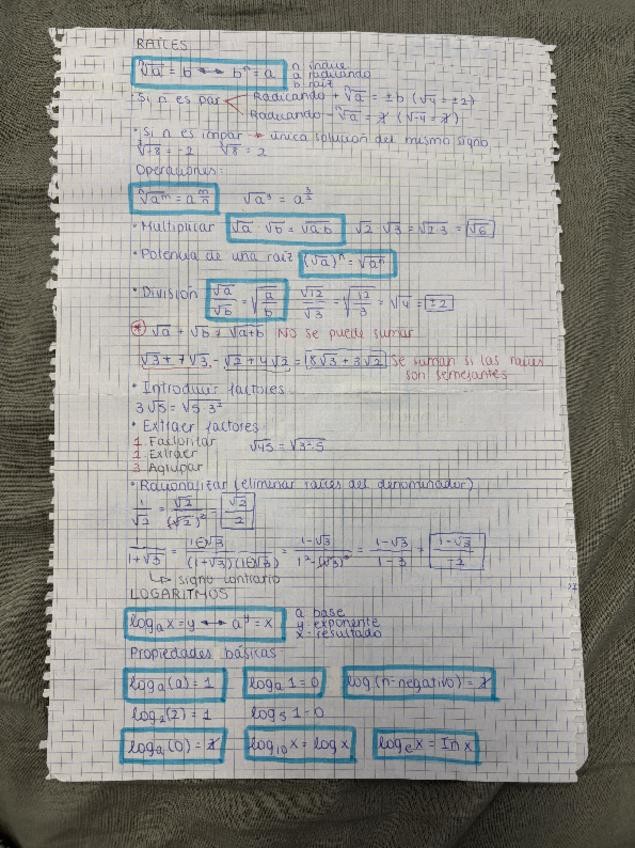 RAÍCES
ⁿ√a = b ↔ bⁿ = a
n índice
a radicando
b raíz
Si n es par
Radicando + ⁿ√a = ±b (√4 = ±2)
Radicando - ⁿ√a = ∄ (√-4 = ∄)
• Si n es impar → única solución del mismo signo
³√-8 = -2 ³√8 = 2
Operaciones:
ⁿ√aᵐ = a^(m/n) √a³ = a^(3/2)
• Multiplicar √a · √b = √a·b √2 · √3 = √2·3 = √6
• Potencia de una raíz (√a)ⁿ = √aⁿ
• División √a/√b = √(a/b) √12/√3 = √(12/3) = √4 = ±2
* √a + √b ≠ √a+b NO se puede sumar
√3 + 7√3 - √2 + 4√2 = 8√3 + 3√2 Se suman si las raíces
son semejantes
• Introducir factores
3√5 = √5·3²
• Extraer factores
1 Factorizar √45 = √3²·5
2 Extraer
3 Agrupar
• Racionalizar (eliminar raíces del denominador)
1/√2 = √2/(√2)² = √2/2
1/(1+√3) = (1⊖√3)/((1+√3)(1⊖√3)) = (1-√3)/(1²-(√3)²) = (1-√3)/(1-3) = (1-√3)/-2
↳ signo contrario
LOGARITMOS
logₐ x = y ↔ aʸ = x
a base
y exponente
x resultado
Propiedades básicas
logₐ(a) = 1 logₐ 1 = 0 log (n=negativo) = ∄
log₂(2) = 1 log₅ 1 = 0
logₐ(0) = ∄ log₁₀ x = log x logₑ x = ln x